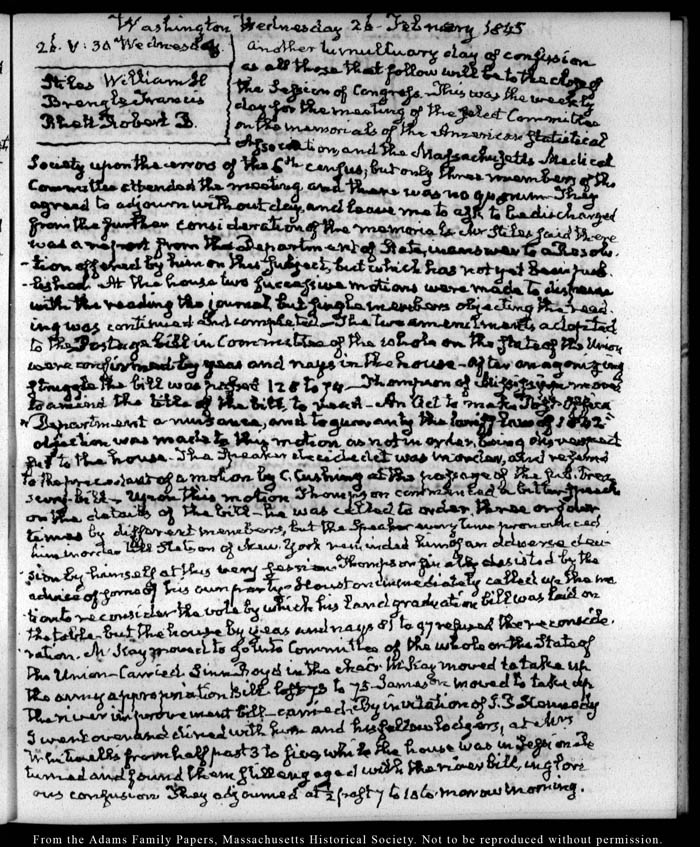 Washington Wednesday 26. February 1845
26. V: 30 Wednesday
Stiles William H
Brengle Francis
Rhett Robert B.
Another tumultuary day of confusion
as all those that follow will be to the close of
the Session of Congress. This was the weekly
day for the meeting of the select Committee
on the memorials of the American Statistical
Association, and the Massachusetts Medical
Society upon the errors of the 6th census; but only three members of the
Committee attended the meeting and there was no quorum. They
agreed to adjourn without day, and leave me to ask to be discharged
from the further consideration of the memorials. Mr Stiles said there
was a report from the Department of State, in answer to a Resolu-
-tion offered by him on this subject, but which has not yet been pub-
-lished. At the house two successive motions were made to dispense
with the reading the journal, but single members objecting the read-
ing was continued and completed. The two amendments adopted
to the Postage bill in Committee of the whole on the State of the Union
were confirmed by yeas and nays in the house. After an agonizing
struggle the bill was passed 128 to 74. Thompson of Mississippi moved
to amend the title of the bill, to read "An Act to make the Post-Office
Department a nuisance, and to guaranty the tariff law of 1842"
objection was made to this motion as not in order, being disrespect
ful to the house. The Speaker decided it was in order, and referred
to the precedent of a motion by C. Cushing at the passage of the sub. Trea-
sury bill. Upon this motion Thompson commenced a bitter speech
on the details of the bill. he was called to order three or four
times by different members, but the Speaker every time pronounced
him in order till Seton of New-York reminded him of an adverse deci-
sion by himself at this very session. Thompson finally desisted by the
advice of some of his own party. Houston immediately called up the mo
tion to reconsider the vote by which his land graduation bill was laid on
the table. but the house by yeas and nays 85 to 97 refused the reconside-
ration. McKay moved to go into Committee of the whole on the State of
the Union. Carried. Linn Boyd in the chair McKay moved to take up
the army appropriation bill. lost 73 to 75. Jameson moved to take up
the river improvement bill—carried. By invitation of J. P. Kennedy
I went over and dined with him and his fellow lodgers, at Mrs
Whitwell's from half past 3 to five, while the house was in Session. Re
turned and found them still engaged with the river bill, in glori
ous confusion. They adjourned at ½ past 7 to 10 to-morrow morning.
From the Adams Family Papers, Massachusetts Historical Society. Not to be reproduced without permission.